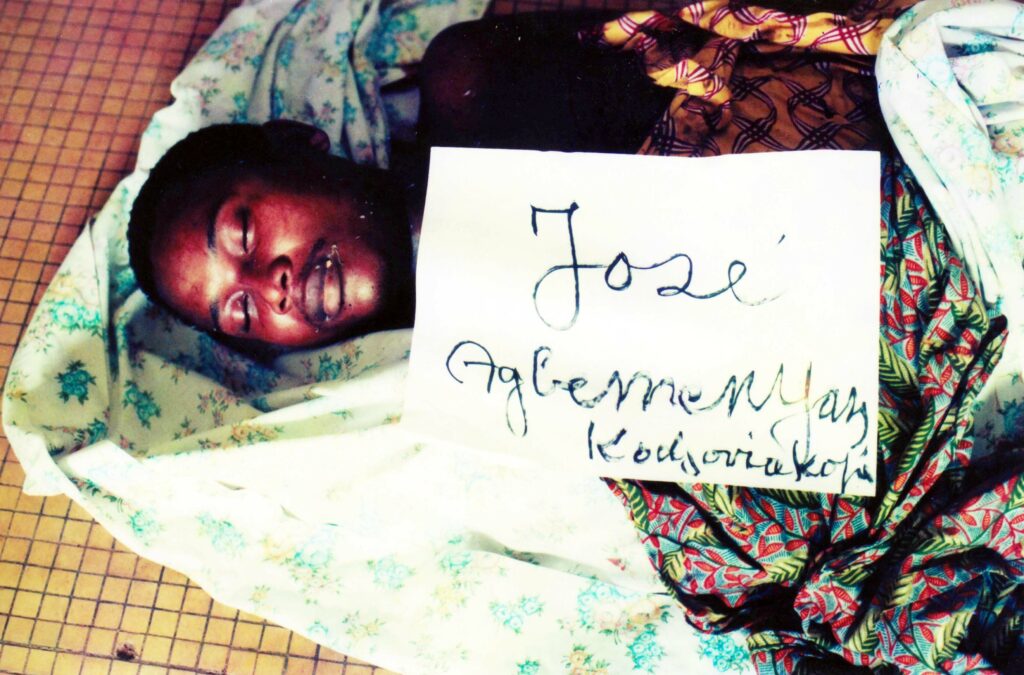 José
Agbemenyan
Kodjoviakopé